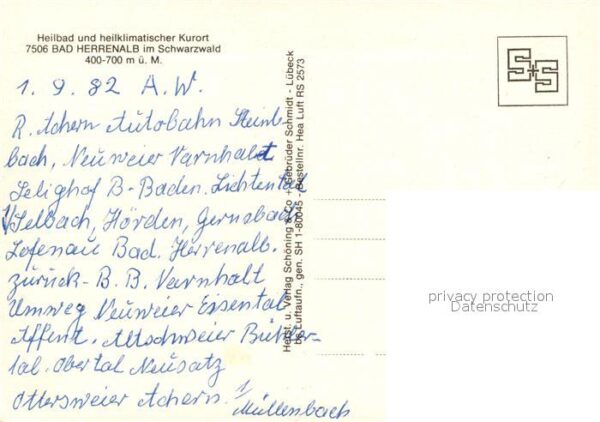 Heilbad und heilklimatischer Kurort
7506 BAD HERRENALB im Schwarzwald
400-700 m ü. M.
1. 9. 82 A.W.
R. Achern Autobahn Steinb-
bach, Neuweier Varnhalt
Selighof B-Baden. Lichtental
Selbach, Hörden, Gernsbach
Lofenau Bad. Herrenalb.
zurück - B. B. Varnhalt
Umweg Neuweier Eisental
Affent. Altschweier Bühler-
tal. Obertal Neusatz
Ottersweier Achern.
Müllenbach
Herst. u. Verlag Schöning & Co + Gebrüder Schmidt - Lübeck
Luftaufn., gen. SH 1-80045 - Bestellnr. Hea Luft RS 2573
S+S
privacy protection
Datenschutz